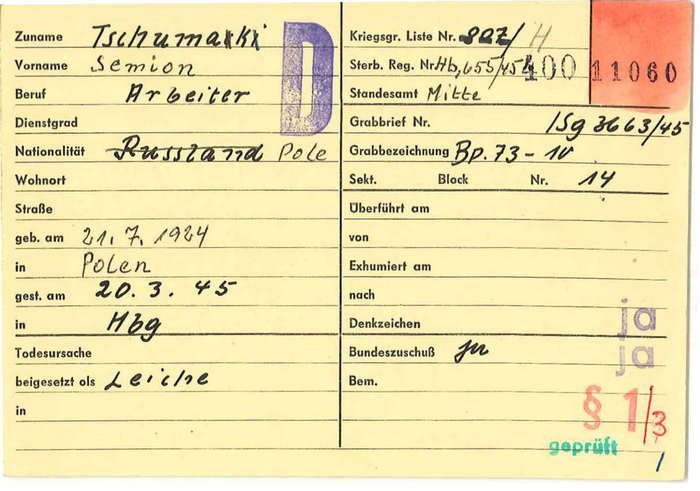 Zuname Tschumakki
Vorname Semion
Beruf Arbeiter
Dienstgrad
Nationalität Russland Pole
Wohnort
Straße
geb. am 21. 7. 1924
in Polen
gest. am 20. 3. 45
in Hbg
Todesursache
beigesetzt als Leiche
in
D
Kriegsgr. Liste Nr. 807/H
Sterb. Reg. Nr. Hb, 655/45
400
11060
Standesamt Mitte
Grabbrief Nr. ISg 3663/45
Grabbezeichnung Bp. 73 - IV
Sekt. Block Nr. 14
Überführt am
von
Exhumiert am
nach
Denkzeichen ja
Bundeszuschuß ja
ja
Bem.
§ 1/3
geprüft